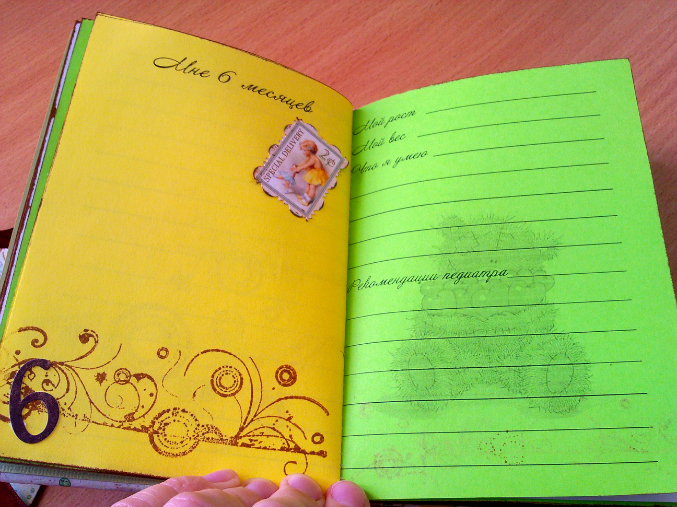 Мне 6 месяцев
SPECIAL DELIVERY
6
Мой рост
Мой вес
Что я умею
Рекомендации педиатра